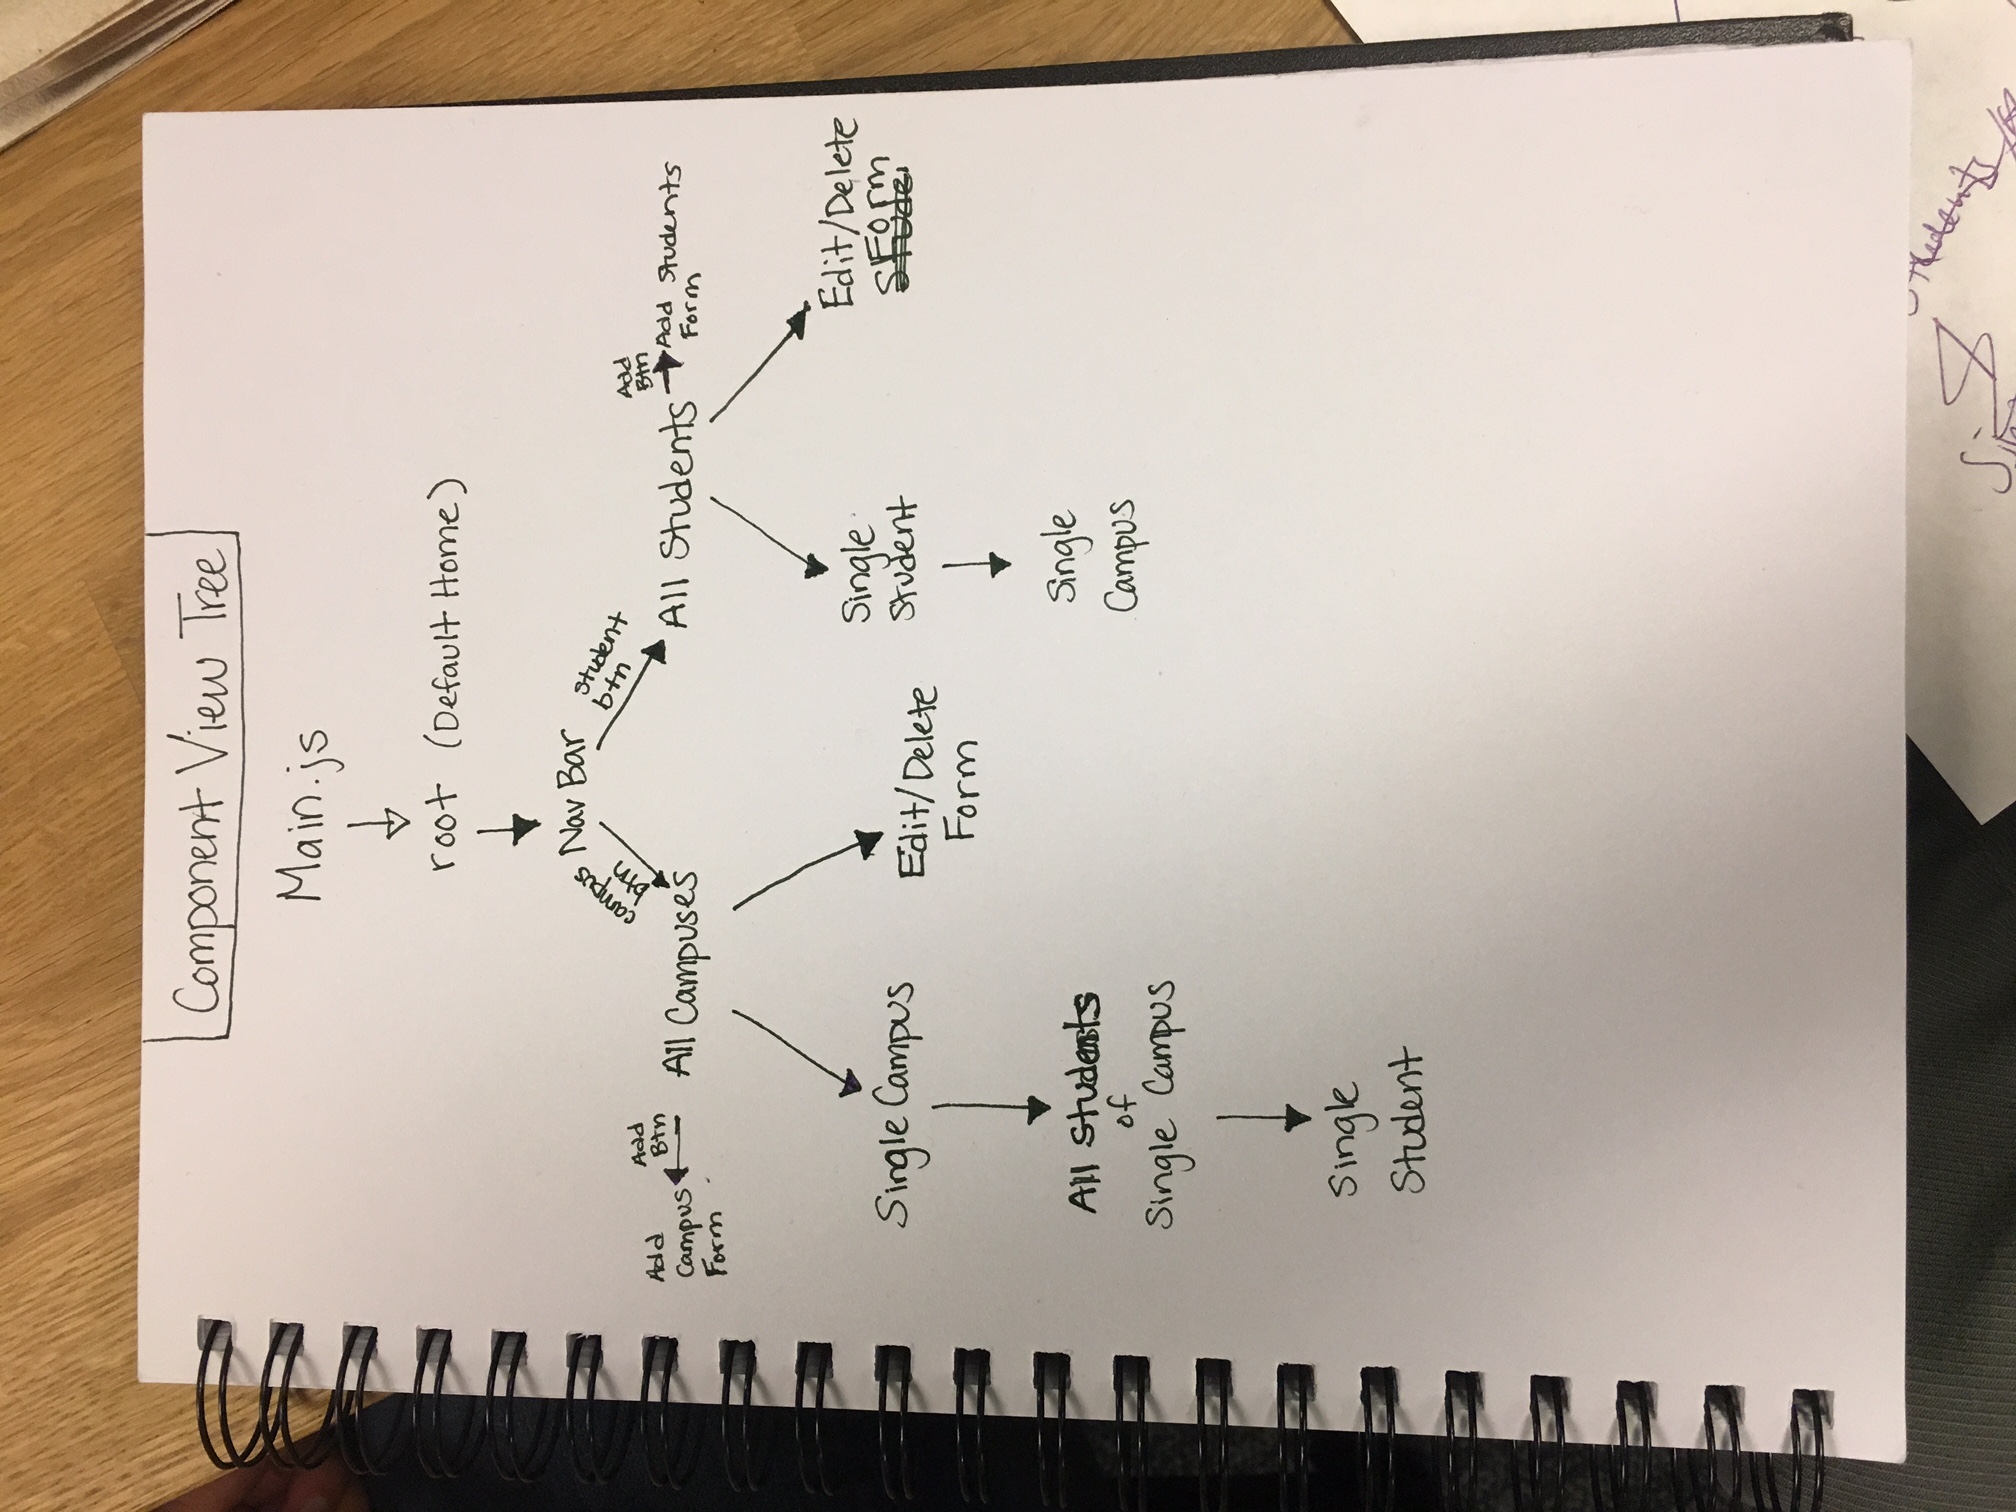 Component View Tree
Main.js
root (Default Home)
Nav Bar
campus
btn
student
btn
Add
Btn
Add
Campus
Form
All Campuses
All Students
Add
Btn
Add Students
Form
Single Campus
Edit/Delete
Form
Single
Student
Edit/Delete
Form
All Students
of
Single Campus
Single
Campus
Single
Student
Students